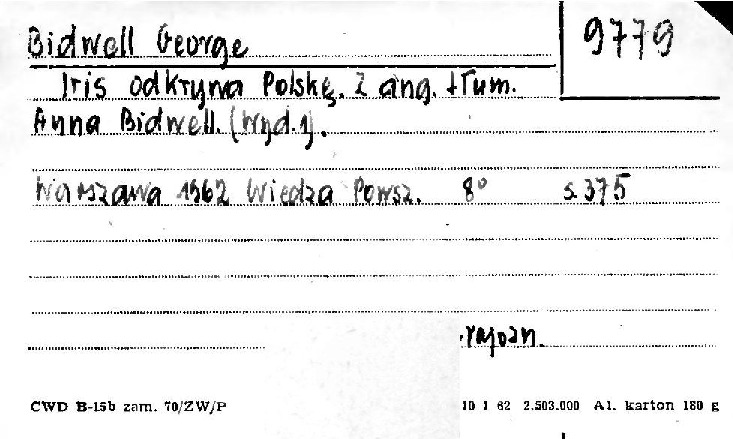 Bidwell George
9779
Iris odkrywa Polskę. Z ang. tłum.
Anna Bidwell. (Wyd. 1).
Warszawa 1962 Wiedza Powsz. 8° s. 375
CWD B-15b zam. 70/ZW/P
10 1 62 2.503.000 A1. karton 180 g